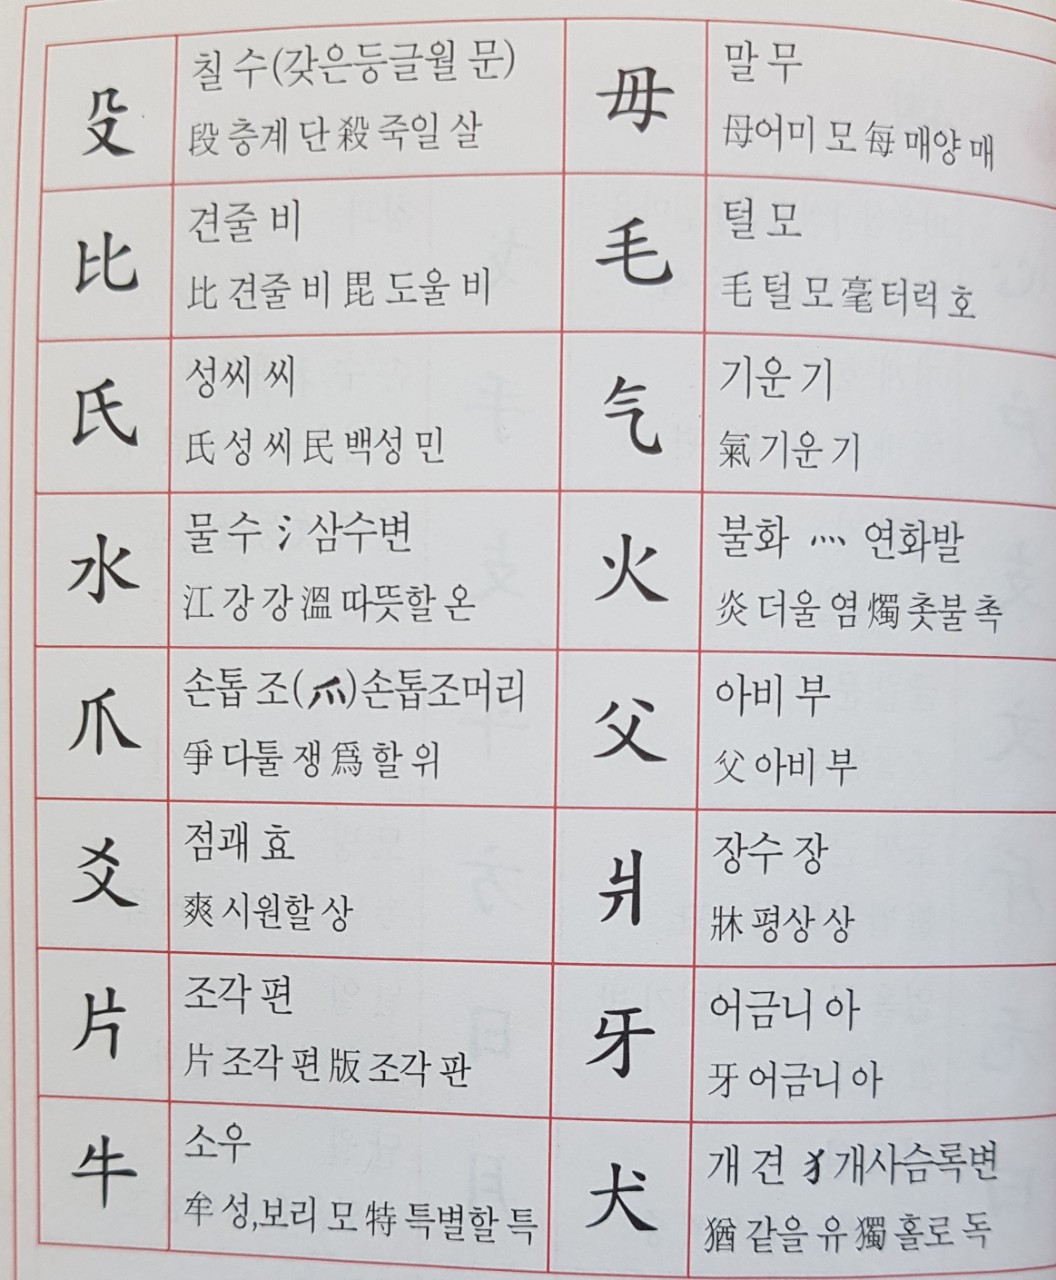 殳
칠 수(갖은둥글월 문)
段 층계 단 殺 죽일 살
毋
말 무
母어미 모 每 매양 매
比
견줄 비
比 견줄 비 毘 도울 비
毛
털 모
毛 털 모 毫 터럭 호
氏
성씨 씨
氏 성 씨 民 백성 민
气
기운 기
氣 기운 기
水
물 수 氵삼수변
江 강 강 溫 따뜻할 온
火
불화 灬 연화발
炎 더울 염 燭 촛불 촉
爪
손톱 조(爫)손톱조머리
爭 다툴 쟁 爲 할 위
父
아비 부
父 아비 부
爻
점괘 효
爽 시원할 상
爿
장수 장
牀 평상 상
片
조각 편
片 조각 편 版 조각 판
牙
어금니 아
牙 어금니 아
牛
소우
牟 성,보리 모 特 특별할 특
犬
개 견 犭개사슴록변
猶 같을 유 獨 홀로 독